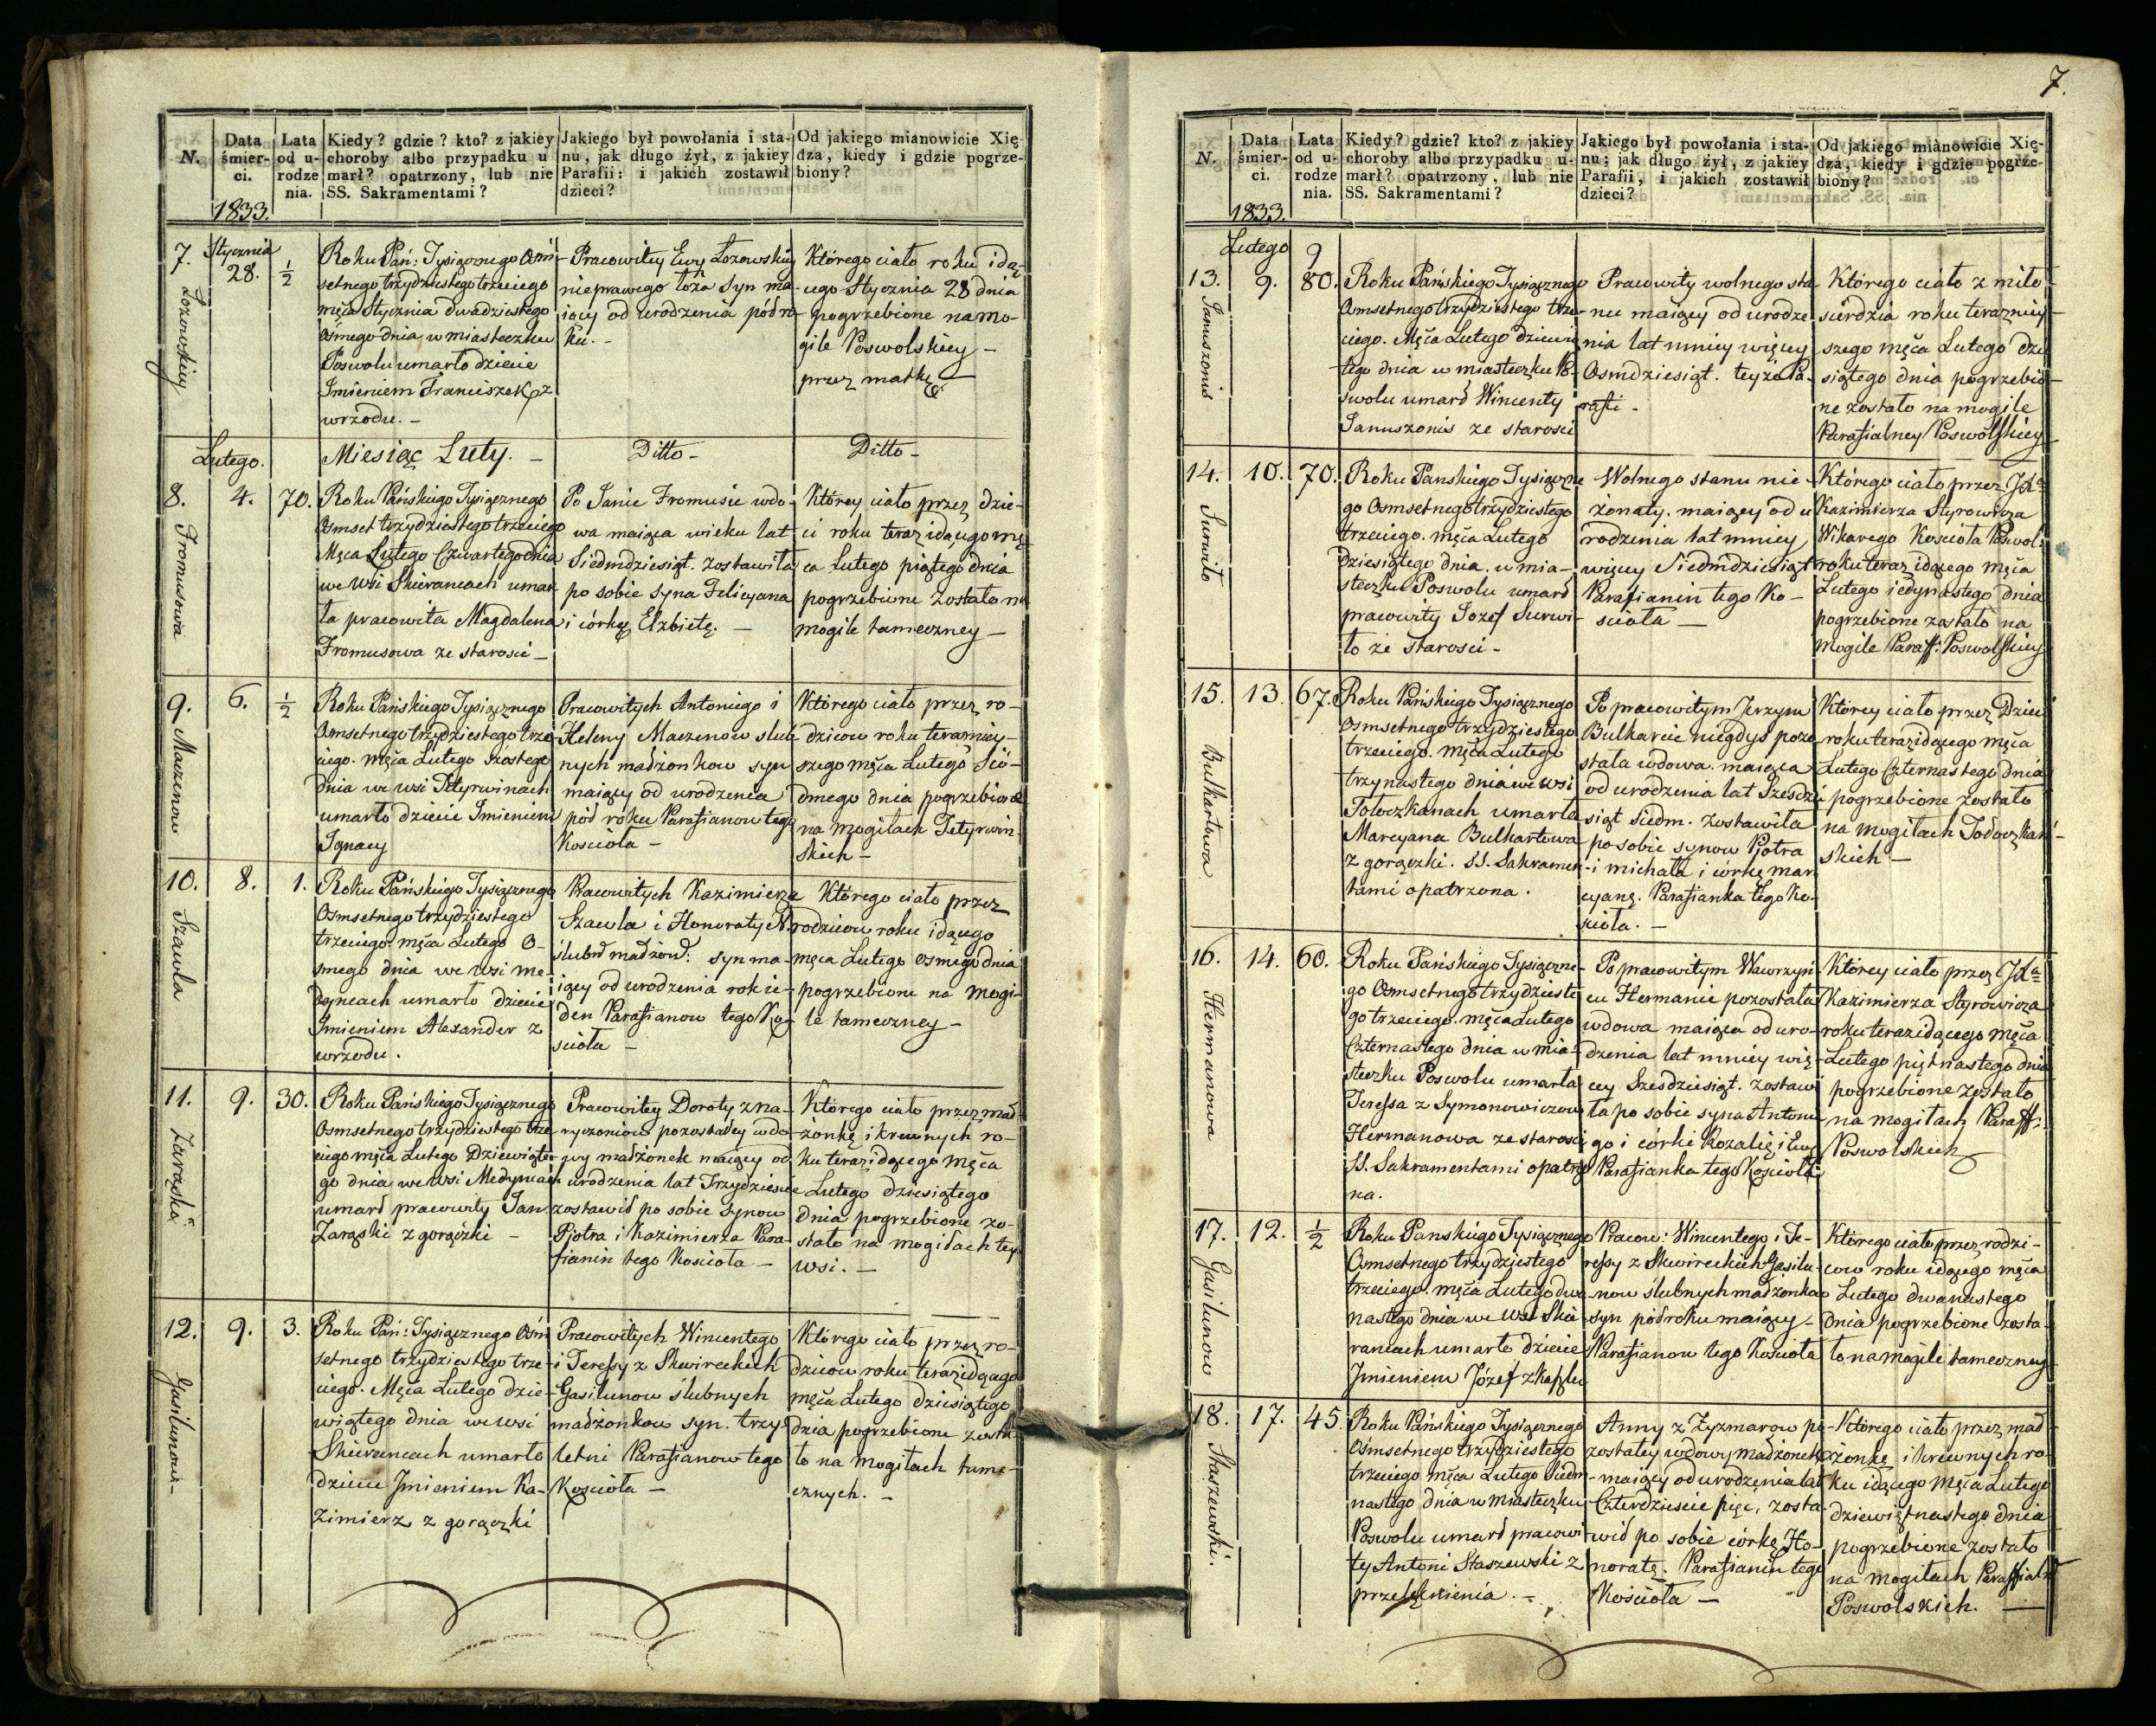 7.
N.
Data śmier-ci.
1833.
Lata od u-rodze nia.
Kiedy? gdzie? kto? z jakiey
choroby albo przypadku u
marł? opatrzony, lub nie
SS. Sakramentami?
Jakiego był powołania i sta-
nu, jak długo żył, z jakiey
Parafii: i jakich zostawił
dzieci?
Od jakiego mianowicie Xię-
dza, kiedy i gdzie pogrze-
biony?
7.
Łozowskiey
Stycznia
28.
½
Roku Pań: Tysiącznego Ośm
setnego trzydziestego trzeciego
męca Stycznia dwadziestego
ósmego dnia w miasteczku
Poswolu umarło dziecie
Imieniem Franciszek z
wrzodu. –
Pracowitey Ewy Łozowskiey
nieprawego łoża Syn ma-
iący od urodzenia pół ro-
ku. –
Którego ciało roku idą-
cego Stycznia 28 dnia
pogrzebione na mo-
gile Poswolskiey –
przez matkę
Lutego.
Miesiąc Luty. –
Ditto –
Ditto –
8.
Fromusowa
4.
70.
Roku Pańskiego Tysiącznego
Osmset trzydziestego trzeciego
Męca Lutego Czwartego dnia
we wsi Skierancach umar
ła pracowita Magdalena
Fromusowa ze starosci –
Po Janie Fromusie wdo-
wa maiąca wieku lat
Siedmdziesiąt. zostawiła
po sobie syna Felicyana
i córkę Elzbietę. –
Którey ciało przez dzie-
ci roku teraz idącego mę
ca Lutego piątego dnia
pogrzebione zostało na
mogile tameczney –
9.
Maczenow
6.
½
Roku Pańskiego Tysiącznego
Osmsetnego trzydziestego trze-
ciego. męca Lutego Szóstego
dnia we wsi Tetyrwinach
umarło dziecie Imieniem
Ignacy
Pracowitych Antoniego i
Heleny Maczenow slub
nych madżonkow syn
maiący od urodzenia
pód roku Parafianow tego
Kościoła –
Którego ciało przez ro-
dzicow roku terazniey-
szego męca Lutego Sió-
dmego dnia pogrzebione
na mogiłach Tetyrwin
skich –
10.
Szawla
8.
1.
Roku Pańskiego Tysiącznego
Osmsetnego trzydziestego
trzeciego męca Lutego O-
smego dnia we wsi Me-
dyncach umarło dziecie
Imieniem Alexander z
wrzodu.
Pracowitych Kazimierza
Szawla i Honoraty N.
slubn madżon: syn ma-
iący od urodzenia rok ie-
den Parafianow tego Ko-
scioła –
Którego ciało przez
rodzicow roku idącego
męca Lutego osmego dnia
pogrzebione na mogi-
le tameczney –
11.
Zarąski
9.
30.
Roku Pańskiego Tysiącznego
Osmsetnego trzydziestego trze
ciego męca Lutego Dziewiąte-
go dnia we wsi Medyncach
umard pracowity Jan
Zarąski z gorączki –
Pracowitey Doroty z Na-
ryczoniow pozostałey wdo
wy madżonek maiący od
urodzenia lat Trzydziescie
zostawid po sobie synow
Pjotra i Kazimierza Para-
fianin tego Kościoła –
Którego ciało przez mad-
żonkę i krewnych ro-
ku teraz idącego męca
Lutego dziesiątego
dnia pogrzebione zo-
stało na mogiłach tey
wsi. –
12.
Gasilunow –
9.
3.
Roku Pań: Tysiącznego Ośm
setnego trzydziestego trze-
ciego. Męca Lutego dzie-
wiątego dnia we wsi
Skierancach umarło
dziecie Imieniem Ka-
zimierz z gorączki
Pracowitych Wincentego
i Teressy z Skwireckich
Gasilunow ślubnych
madżonkow syn. trzy
letni Parafianow tego
Kościoła –
Którego ciało przez ro-
dzicow roku teraz idącego
męca Lutego dziesiątego
dnia pogrzebione zosta-
ło na mogiłach tame-
cznych. –
N.
Data śmier-ci.
1833.
Lata od u-rodze nia.
Kiedy? gdzie? kto? z jakiey
choroby albo przypadku u-
marł? opatrzony, lub nie
SS. Sakramentami?
Jakiego był powołania i sta-
nu; jak długo żył, z jakiey
Parafii, i jakich zostawił
dzieci?
Od jakiego mianowicie Xię-
dza, kiedy i gdzie pogrze-
biony?
Lutego
13.
Januszonis
9.
80.
Roku Pańskiego Tysiącznego
Osmsetnego trzydziestego trze-
ciego. Męca Lutego dziewią
tego dnia w miasteczku Po-
swolu umard Wincenty
Januszonis ze starosci
Pracowity wolnego sta-
nu maiący od urodze
nia lat mniey więcey
Osmdziesiąt. teyże Pa-
rafii –
Którego ciało z miło
sierdzia roku terazniey-
szego męca Lutego dzie
siątego dnia pogrzebio-
ne zostało na mogile
Parafialney Poswolskiey
14.
Surwiło
10.
70.
Roku Panskiego Tysiączne
go Osmsetnego trzydziestego
trzeciego. męca Lutego
dziesiątego dnia. w mia-
steczku Poswolu umard
pracowity Jozef Surwi-
ło ze starosci –
Wolnego stanu nie-
żonaty. maiący od u
rodzenia lat mniey
więcey Siedmdziesiąt
Parafianin tego Ko-
scioła –
Którego ciało przez JXa
Kazimierza Styrowicza
Wikarego Kościoła Poswol:
roku teraz idącego męca
Lutego iedynastego dnia
pogrzebione zostało na
mogile Paraff: Poswolskiey
15.
Bulkartowa
13.
67.
Roku Pańskiego Tysiącznego
Osmsetnego trzydziestego
trzeciego. męca Lutego
trzynastego dnia we wsi
Tołoczkanach umarła
Marcyana Bulkartowa
z gorączki. SS. Sakramen-
tami opatrzona.
Po pracowitym Jerzym
Bulkarcie niegdys pozo
stała wdowa. maiąca
od urodzenia lat Szesdzie
siąt siedm. zostawiła
po sobie synow Pjotra
i michała i córkę mar
cyanę. Parafianka tego Ko-
scioła. –
Którey ciało przez Dzieci
roku teraz idącego męca
Lutego Czternastego dnia
pogrzebione zostało
na mogiłach Tołoczkań-
skich –
16.
Hermanowa
14.
60.
Roku Pańskiego Tysiączne-
go Osmsetnego trzydzieste
go trzeciego. męca Lutego
Czternastego dnia w mia-
steczku Poswolu umarła
Teressa z Symonowiczow
Hermanowa ze starosci
SS. Sakramentami opatrzo
na.
Po pracowitym Wawrzyń-
cu Hermanie pozostała
wdowa maiąca od uro-
dzenia lat mniey wię-
cey Szesdziesiąt. zostawi
ła po sobie syna Antonie
go i córki Rozalię i Ewę
Parafianka tego Kościoła
Którey ciało przez JXa
Kazimierza Styrowicza
roku teraz idącego męca
Lutego piętnastego dnia
pogrzebione zostało
na mogiłach Paraff:
Poswolskich
17.
Gasilunow
12.
½
Roku Panskiego Tysiącznego
Osmsetnego trzydziestego
trzeciego. męca Lutego dwu
nastego dnia we wsi Skie
rancach umarło dziecie
Imieniem Józef z kaszlu
Pracow: Wincentego i Te-
ressy z Skwireckich Gasilu-
now ślubnych madżonkow
syn pódroku maiący –
Parafianow tego Kościoła
Którego ciało przez rodzi-
cow roku idącego męca
Lutego dwanastego
dnia pogrzebione zosta-
ło na mogile tameczney
18.
Staszewski.
17.
45.
Roku Pańskiego Tysiącznego
Ośmsetnego trzydziestego
trzeciego męca Lutego Siedm
nastego dnia w miasteczku
Poswolu umard pracowi-
ty Antoni Staszewski z
przelęknienia. –
Anny z Zyzmarow po-
zostałey wdowy madżonek
maiący od urodzenia lat
Czterdziescie pięc, zosta-
wid po sobie córkę Ho-
noratę. Parafianin tego
Kościoła –
Którego ciało przez mad
żonkę i krewnych ro
ku idącego męca Lutego
dziewiętnastego dnia
pogrzebione zostało
na mogiłach Paraffialn
Poswolskich. –